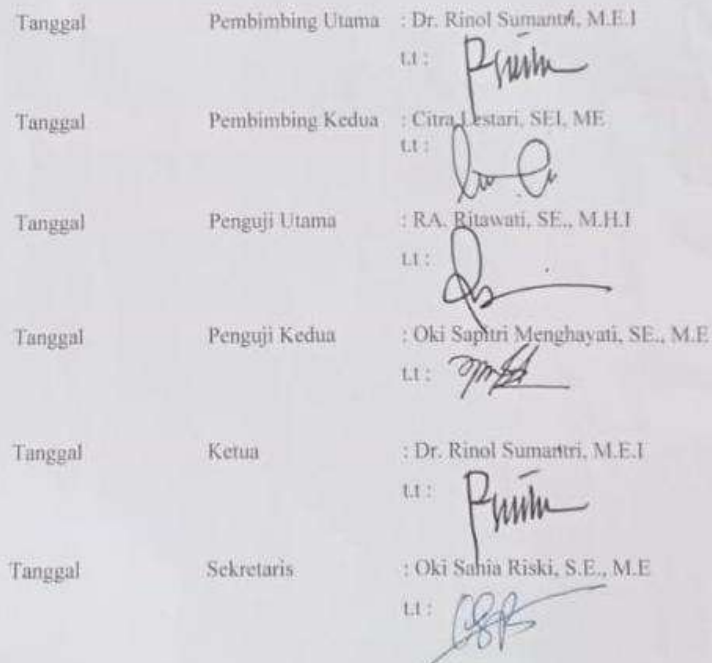 Tanggal Pembimbing Utama : Dr. Rinol Sumantri, M.E.I
t.t :
Tanggal Pembimbing Kedua : Citra Lestari, SEI, ME
t.t :
Tanggal Penguji Utama : RA. Ritawati, SE., M.H.I
t.t :
Tanggal Penguji Kedua : Oki Sapitri Menghayati, SE., M.E
t.t :
Tanggal Ketua : Dr. Rinol Sumantri, M.E.I
t.t :
Tanggal Sekretaris : Oki Sania Riski, S.E., M.E
t.t :